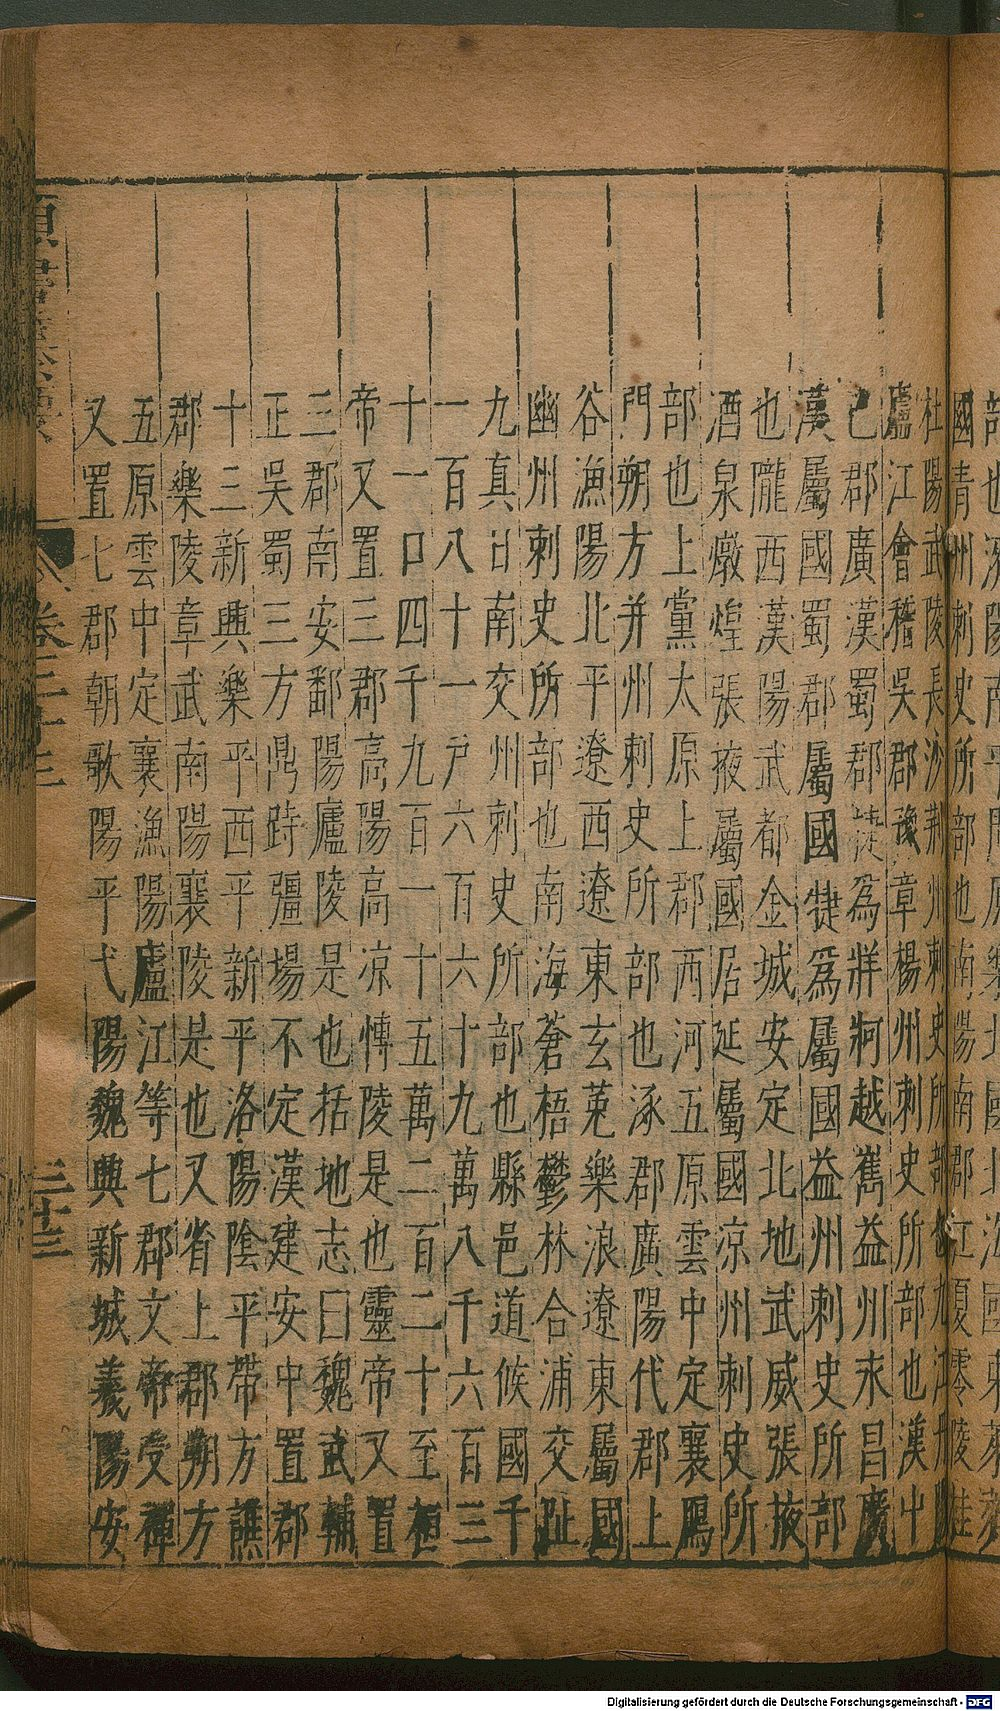 國青州刺史所部也南陽南郡江夏零陵桂
杜陽武陵長沙荊州刺史所部也九江丹陽
廬江會稽吳郡豫章楊州刺史所部也漢中
己郡廣漢蜀郡犍為牂牁越嶲益州永昌廣
漢屬國蜀郡屬國犍爲屬國益州刺史所部
也隴西漢陽武都金城安定北地武威張掖
酒泉燉煌張掖屬國居延屬國凉州刺史所
部也上黨太原上郡西河五原雲中定襄鴈
門朔方并州刺史所部也涿郡廣陽代郡上
谷漁陽北平遼西遼東玄菟樂浪遼東屬國
幽州刺史所部也南海蒼梧鬱林合浦交趾
九真日南交州刺史所部也縣邑道候國千
一百八十一户六百六十九萬八千六百三
十一口四千九百一十五萬二百二十至桓
帝又置三郡高陽高凉愽陵是也靈帝又置
三郡南安鄱陽廬陵是也括地志曰魏武輔
正吳蜀三方鼎跱彊場不定漢建安中置郡
十三新興樂平西平新平洛陽陰平帶方譙
郡樂陵章武南陽襄陵是也又省上郡朔方
五原雲中定襄漁陽廬江等七郡文帝受禪
又置七郡朝歌陽平弋陽魏興新城義陽安
Digitalisierung gefördert durch die Deutsche Forschungsgemeinschaft - DFG